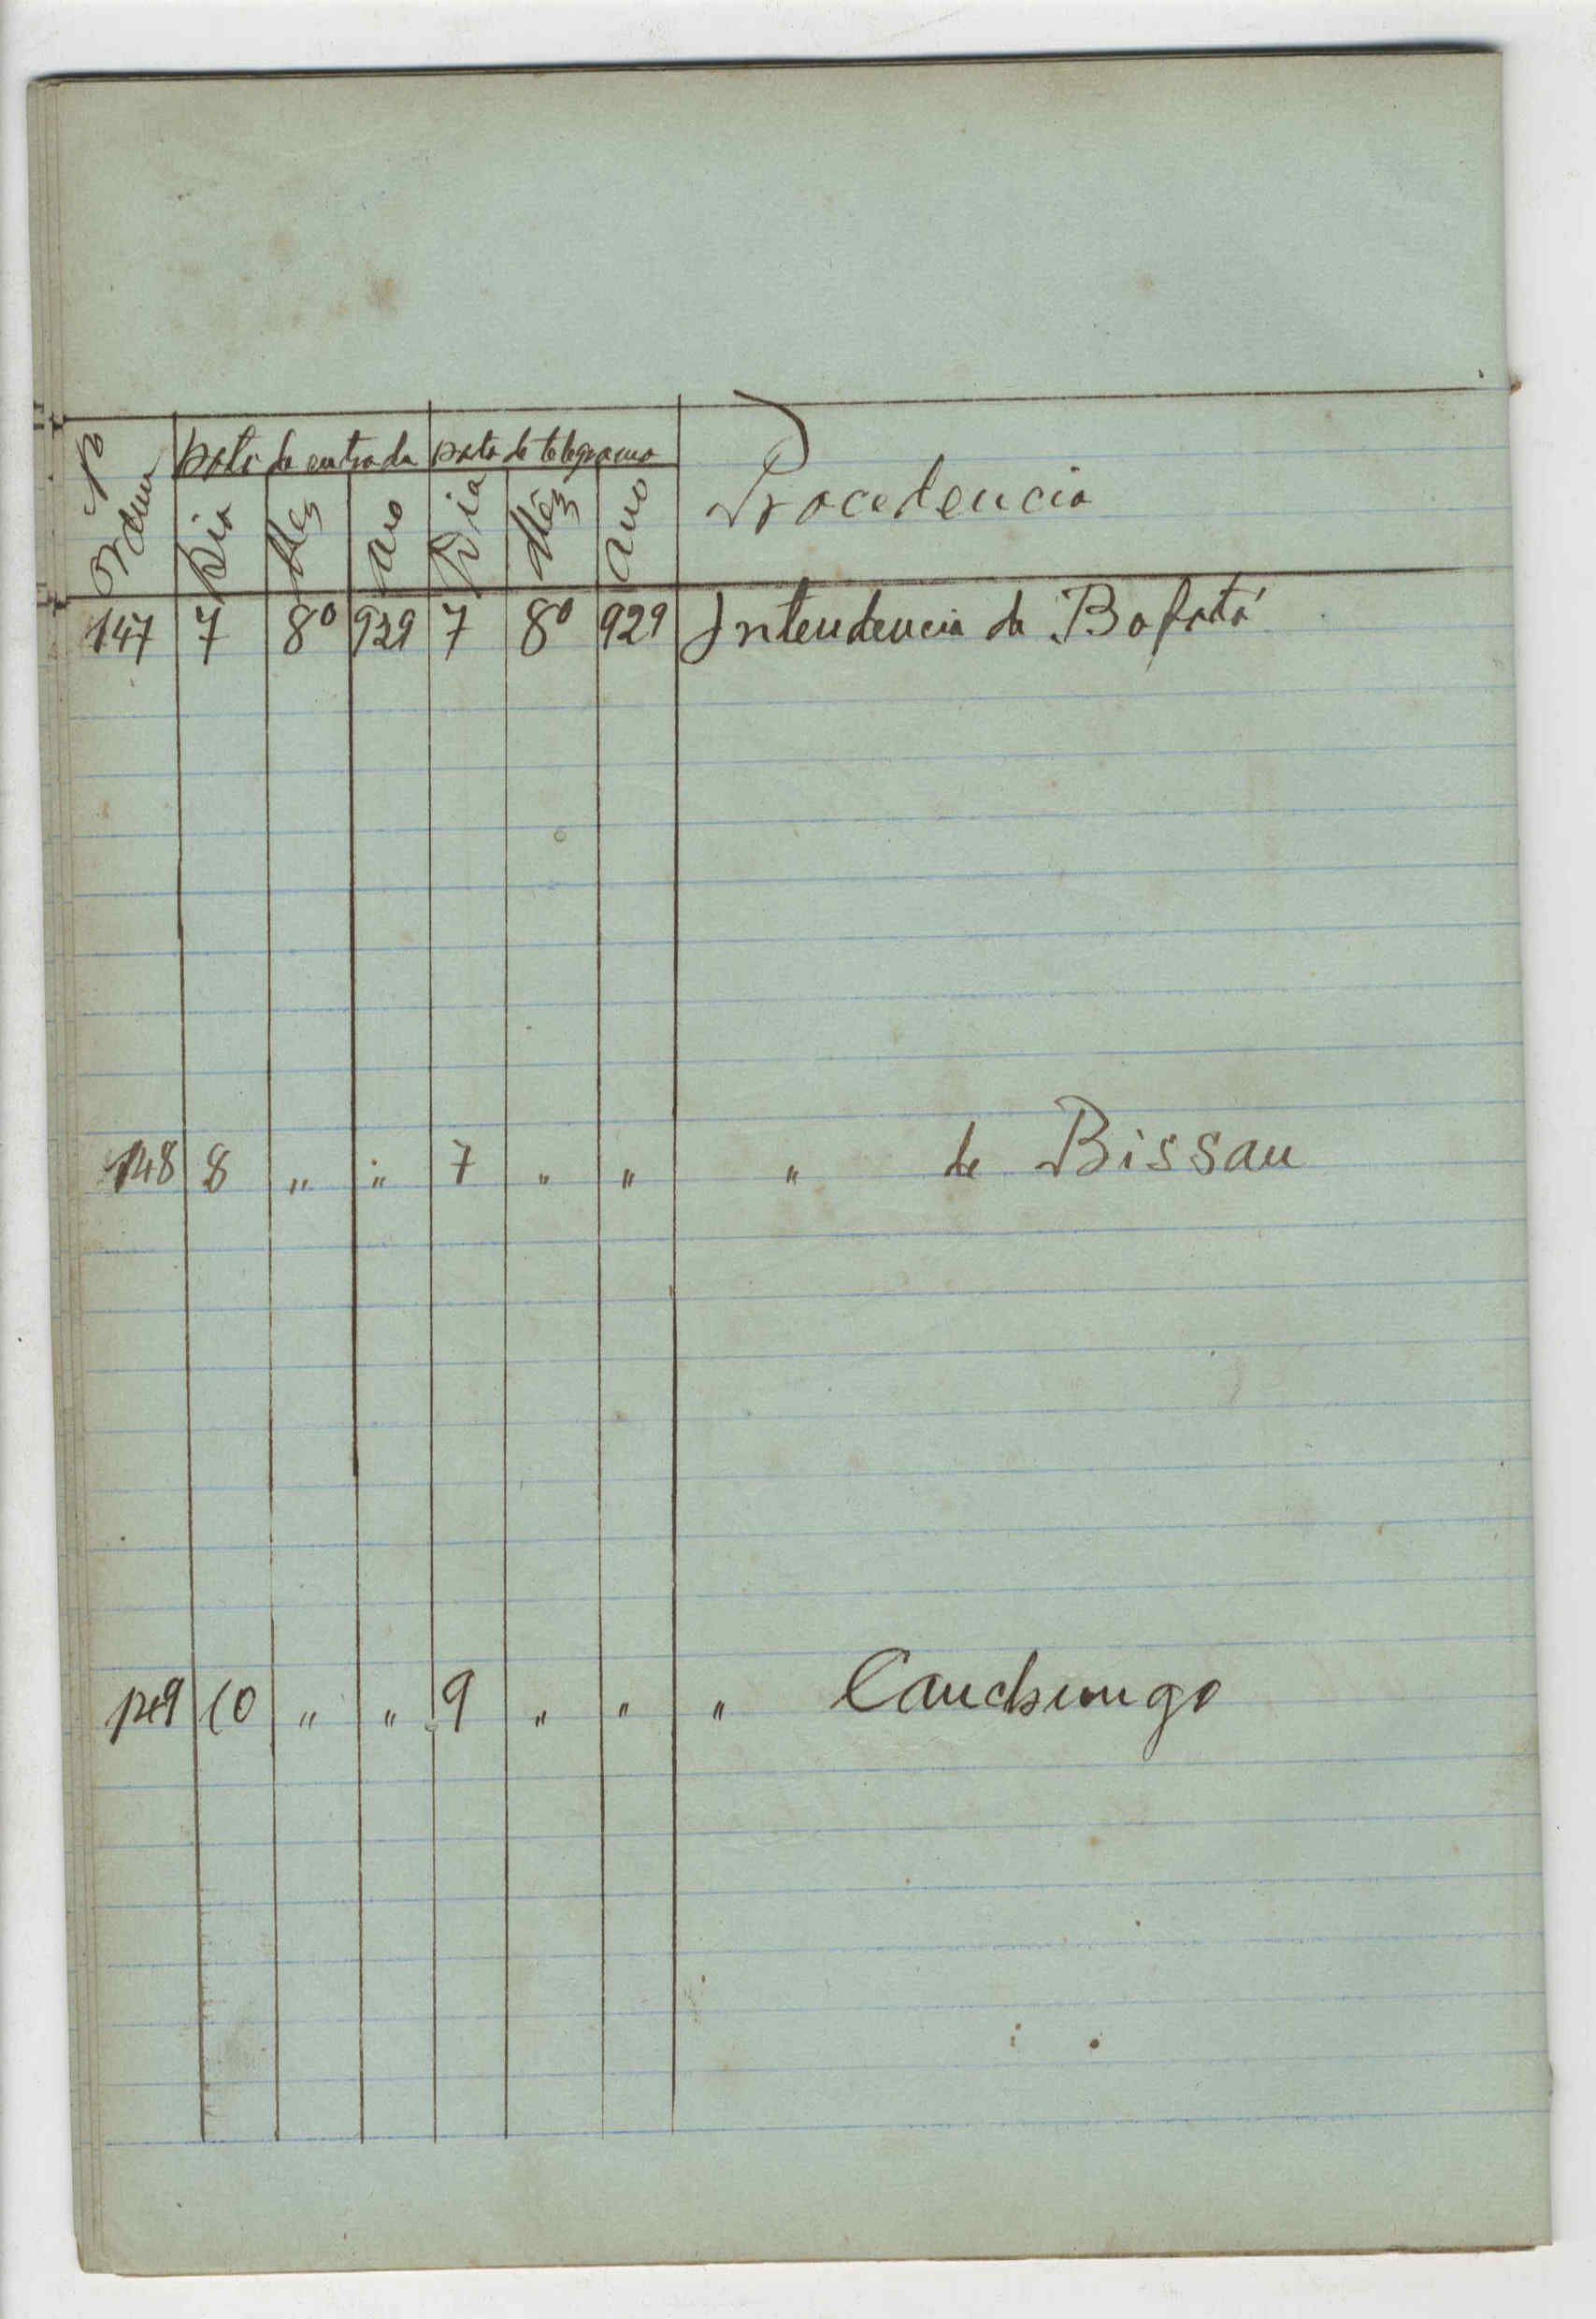 Nº Ordem Data de entrada Data de telegrama Procedencia
Dia Mez Ano Dia Mêz Ano
147 7 8º 929 7 8º 929 Intendencia de Bafatá
148 8 " " 7 " " " de Bissau
149 10 " " 9 " " " Canchungo